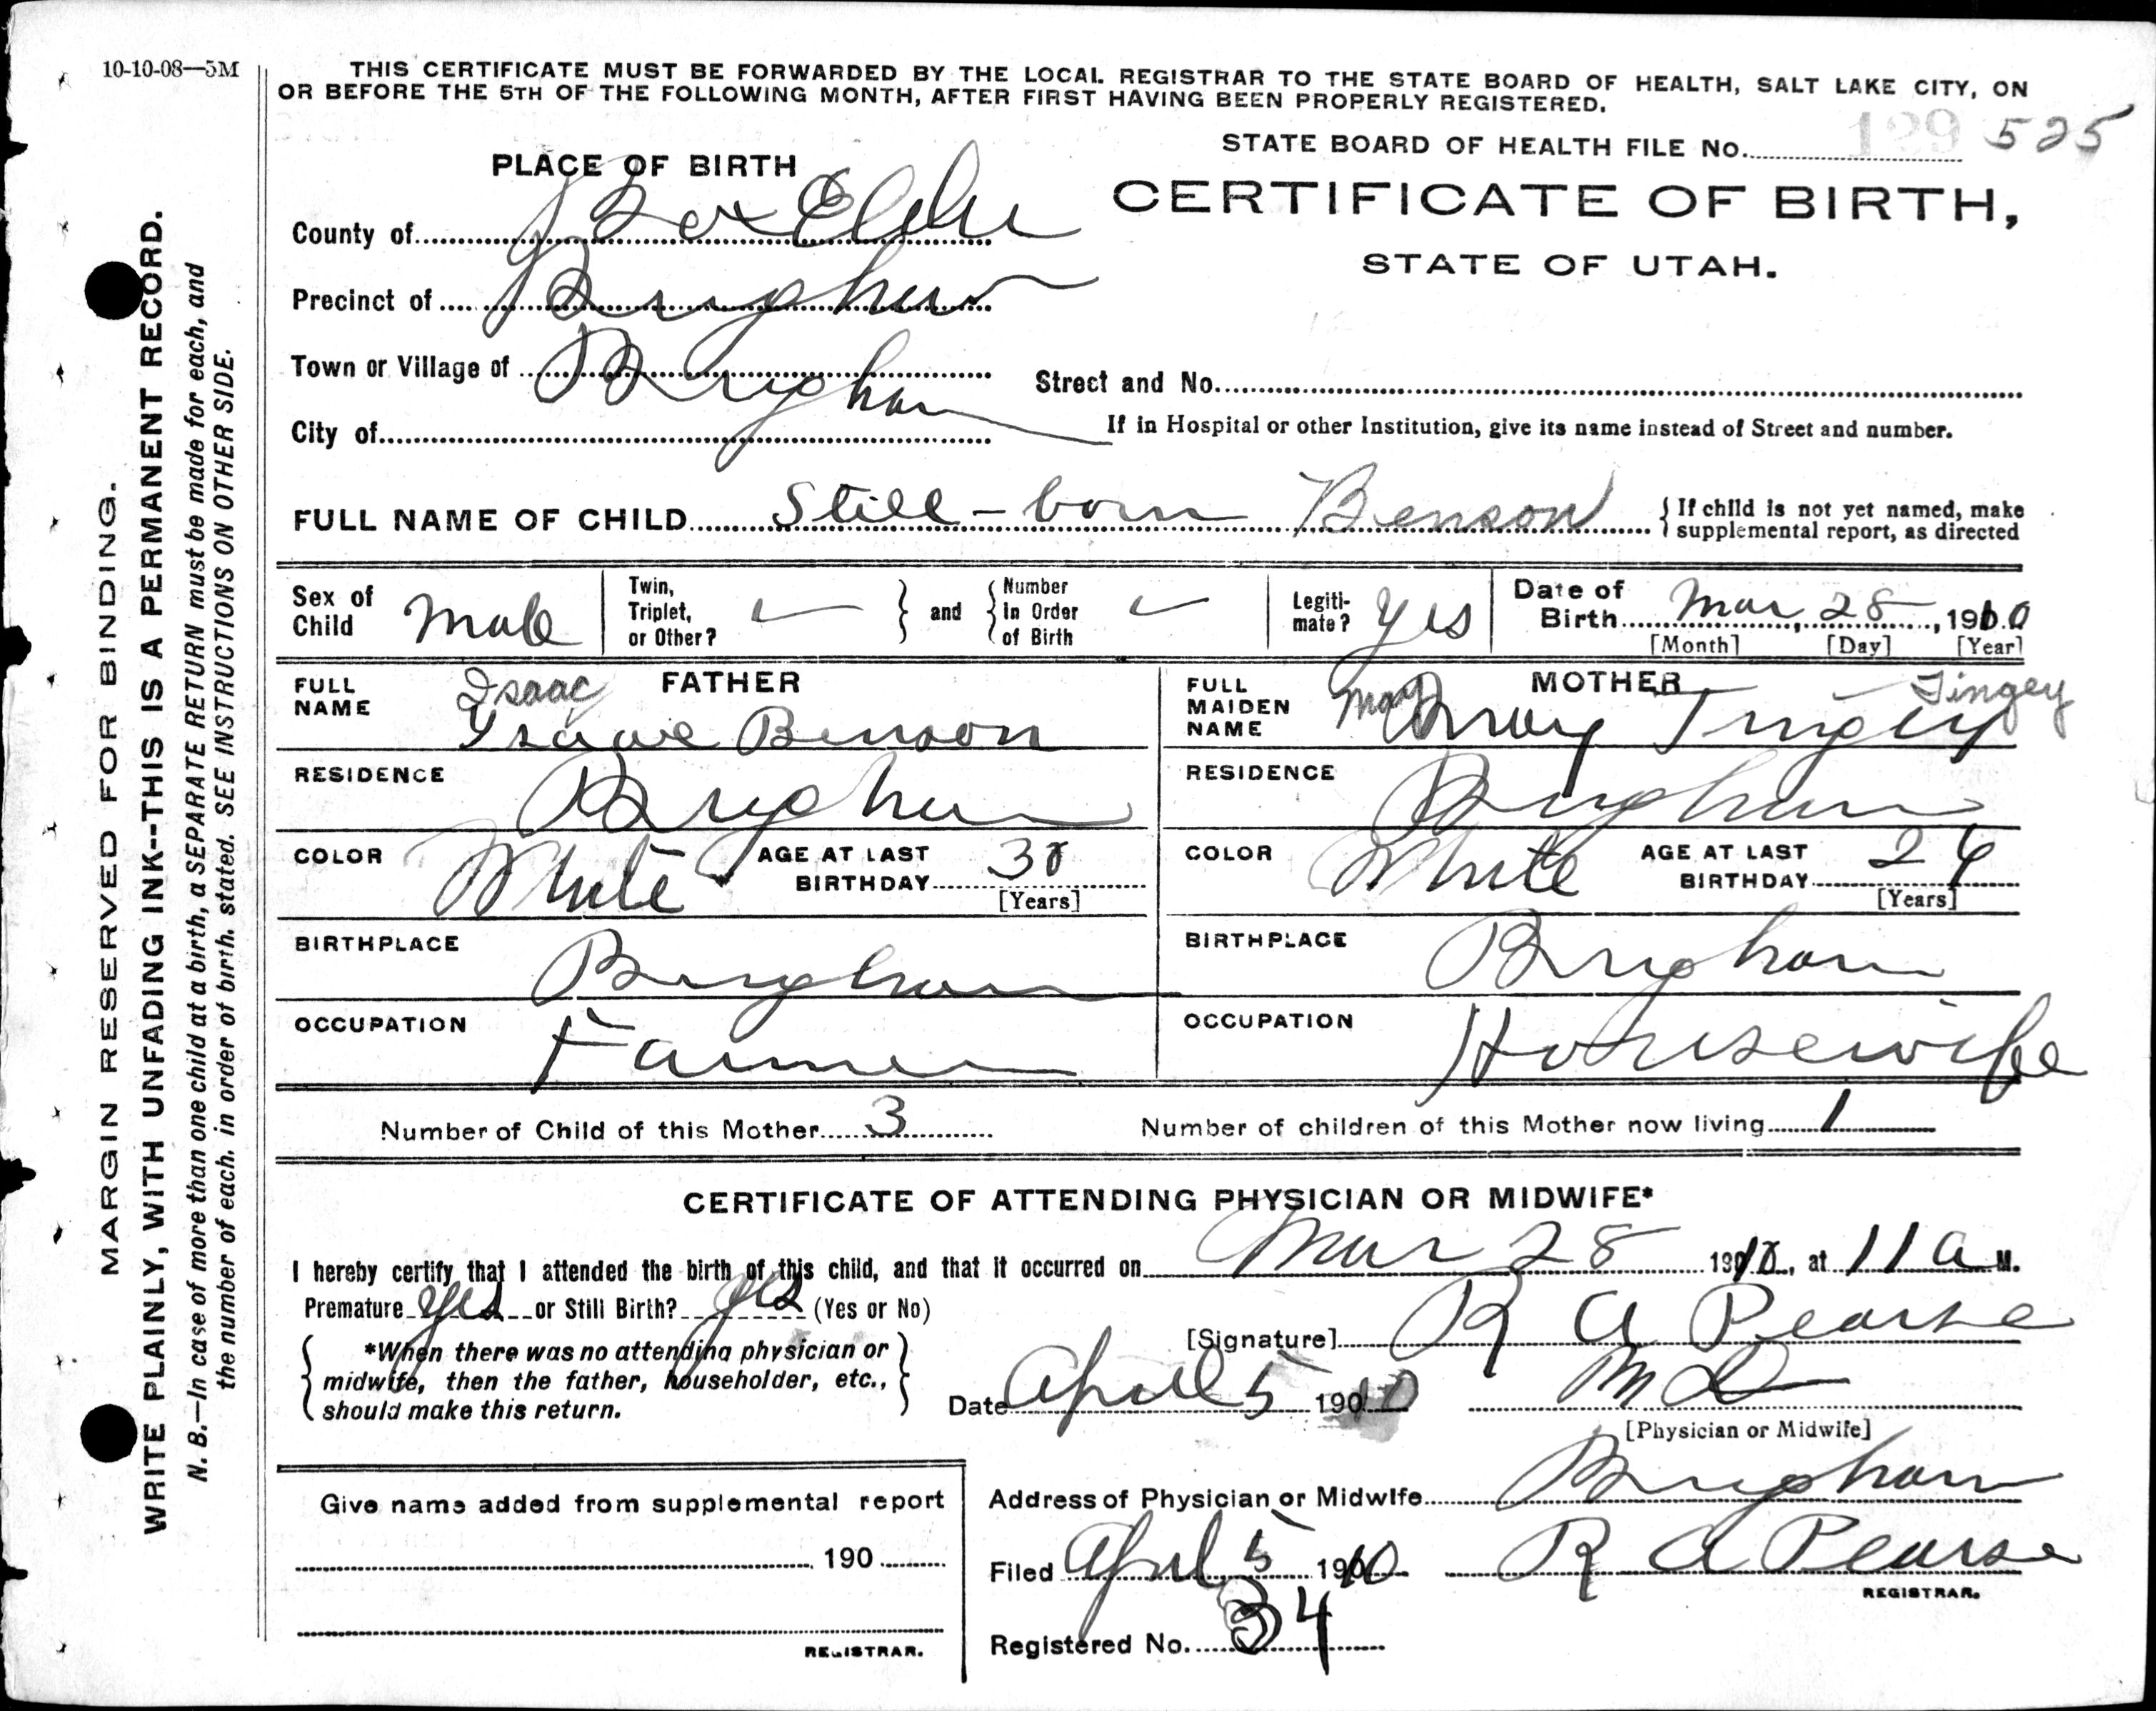 10-10-08—5M
THIS CERTIFICATE MUST BE FORWARDED BY THE LOCAL REGISTRAR TO THE STATE BOARD OF HEALTH, SALT LAKE CITY, ON
OR BEFORE THE 5TH OF THE FOLLOWING MONTH, AFTER FIRST HAVING BEEN PROPERLY REGISTERED.
STATE BOARD OF HEALTH FILE No. 129 525
PLACE OF BIRTH
CERTIFICATE OF BIRTH,
STATE OF UTAH.
County of Box Elder
Precinct of Brigham
Town or Village of Brigham
Street and No.
City of
If in Hospital or other Institution, give its name instead of Street and number.
FULL NAME OF CHILD Still-born Benson { If child is not yet named, make
supplemental report, as directed
Sex of Child Male
Twin, Triplet, or Other? } and { Number In Order of Birth
Legitimate? Yes
Date of Birth Mar, 28, 1910
[Month] [Day] [Year]
FATHER
FULL NAME Isaac
Benson
RESIDENCE Brigham
COLOR White AGE AT LAST BIRTHDAY 38
[Years]
BIRTHPLACE Brigham
OCCUPATION Farmer
MOTHER
FULL MAIDEN NAME Mary Tingey
Mary Tingey
RESIDENCE Brigham
COLOR White AGE AT LAST BIRTHDAY 24
[Years]
BIRTHPLACE Brigham
OCCUPATION Housewife
Number of Child of this Mother 3 Number of children of this Mother now living 1
CERTIFICATE OF ATTENDING PHYSICIAN OR MIDWIFE*
I hereby certify that I attended the birth of this child, and that it occurred on Mar 28 1910, at 11 a M.
Premature yes or Still Birth? yes (Yes or No)
[Signature] R A Pearse
*When there was no attending physician or
midwife, then the father, householder, etc.,
should make this return.
Date April 5 1910 M D
[Physician or Midwife]
Give name added from supplemental report
190
REGISTRAR.
Address of Physician or Midwife Brigham
Filed April 5 1910 R A Pearse
REGISTRAR.
Registered No. 34
MARGIN RESERVED FOR BINDING.
WRITE PLAINLY, WITH UNFADING INK--THIS IS A PERMANENT RECORD.
N. B.—In case of more than one child at a birth, a SEPARATE RETURN must be made for each, and
the number of each, in order of birth, stated. SEE INSTRUCTIONS ON OTHER SIDE.